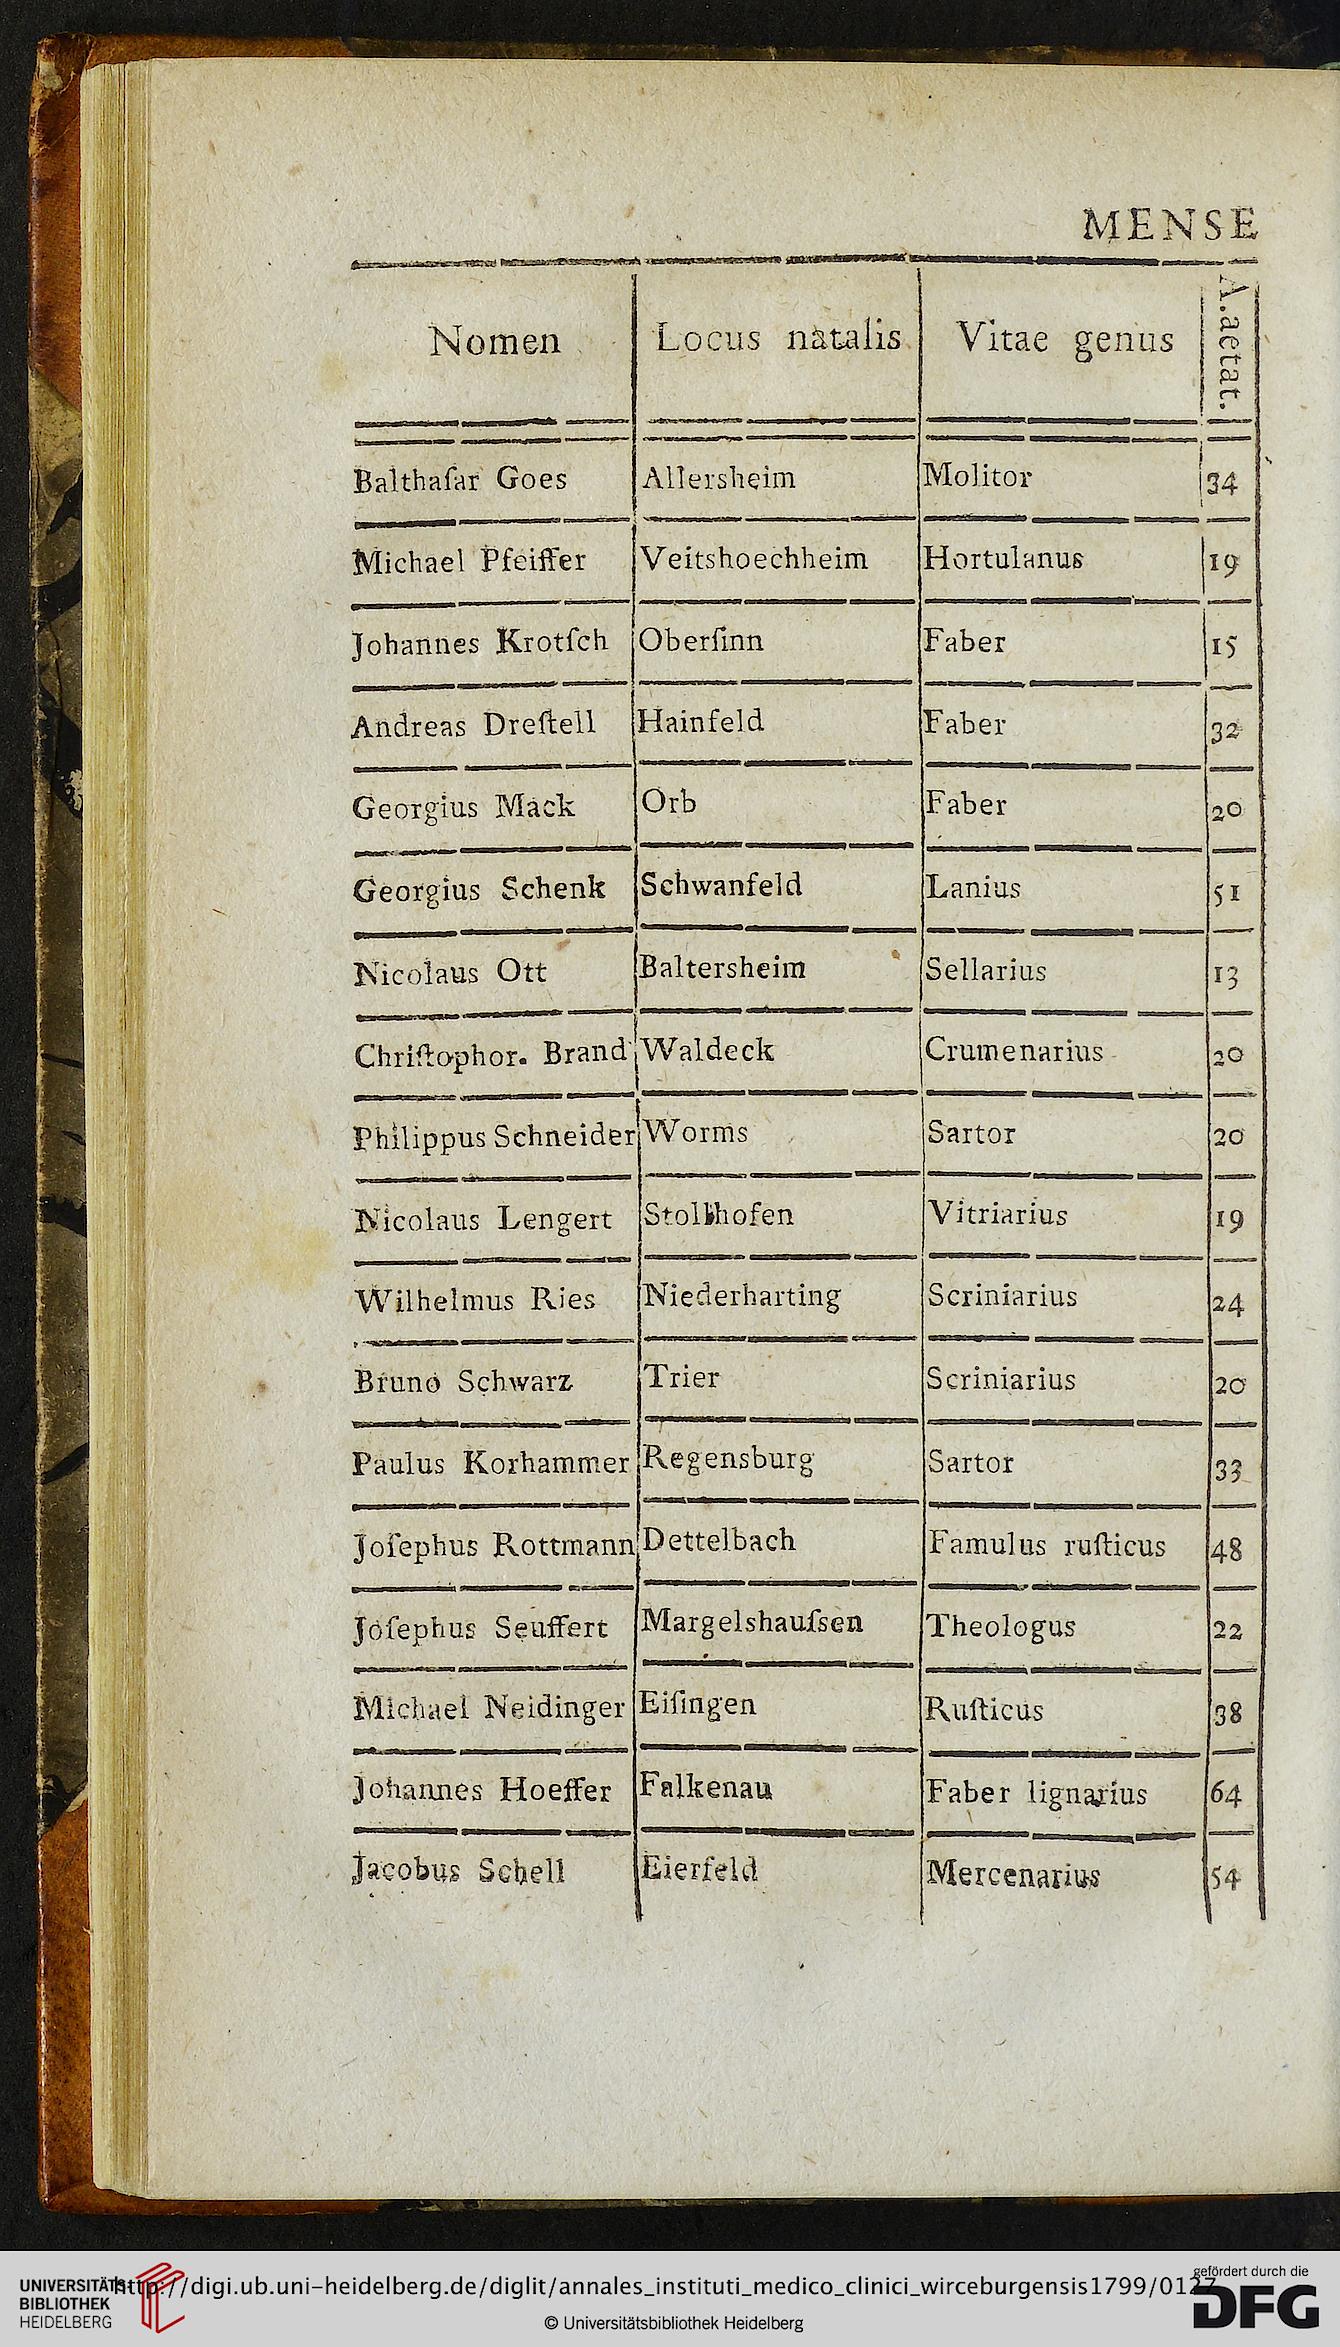 MENSE
Nomen Locus natalis Vitae genus A. aetat.
Balthaſar Goes Allersheim Molitor 34
Michael Pfeiffer Veitshoechheim Hortulanus 19
Johannes Krotſch Oberſinn Faber 15
Andreas Dreſtell Hainfeld Faber 32
Georgius Mack Orb Faber 20
Georgius Schenk Schwanfeld Lanius 51
Nicolaus Ott Baltersheim Sellarius 13
Chriſtophor. Brand Waldeck Crumenarius 20
Philippus Schneider Worms Sartor 20
Nicolaus Lengert Vitriarius 19
Wilhelmus Ries Niederharting Scriniarius 24
Bruno Schwarz Trier Scriniarius 20
Paulus Korhammer Regensburg Sartor 33
Joſephus Rottmann Dettelbach Famulus ruſticus 48
Joſephus Seuffert Margelshauſsen Theologus 22
Michael Neidinger Eiſingen Ruſticus 38
Johannes Hoeffer Falkenau Faber lignarius 64
Jacobus Schell Eierfeld Mercenarius 54
UNIVERSITÄTS-
BIBLIOTHEK
HEIDELBERG
http://digi.ub.uni-heidelberg.de/diglit/annales_instituti_medico_clinici_wirceburgensis1799/0127
© Universitätsbibliothek Heidelberg
gefördert durch die
DFG